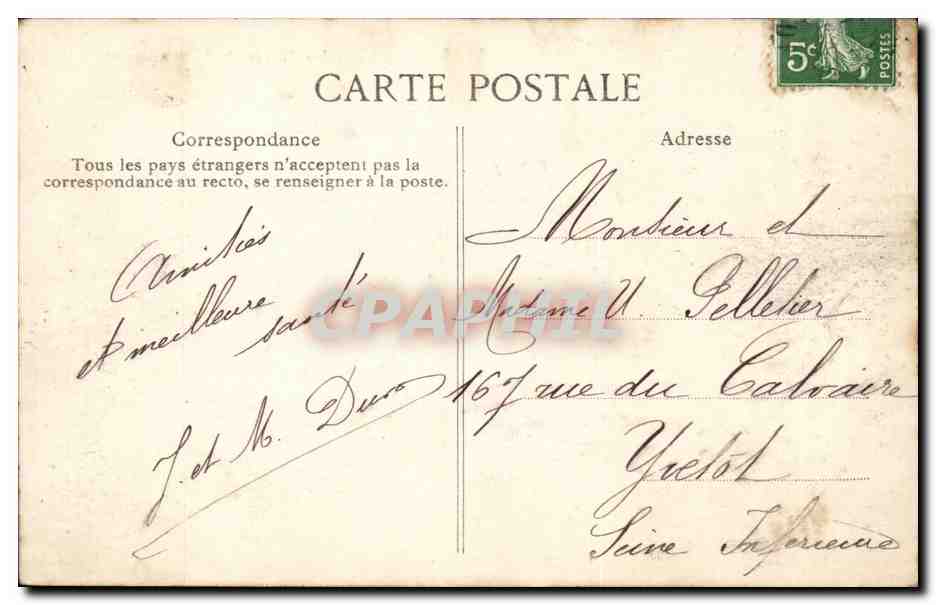 5c
POSTES
CARTE POSTALE
Correspondance
Tous les pays étrangers n'acceptent pas la
correspondance au recto, se renseigner à la poste.
Amitiés
et meilleure
santé
J. et M.
Adresse
Monsieur et
Madame U. Pelletier
167 rue du Calvaire
Yvetôt
Seine Inférieure
CPAPHIL